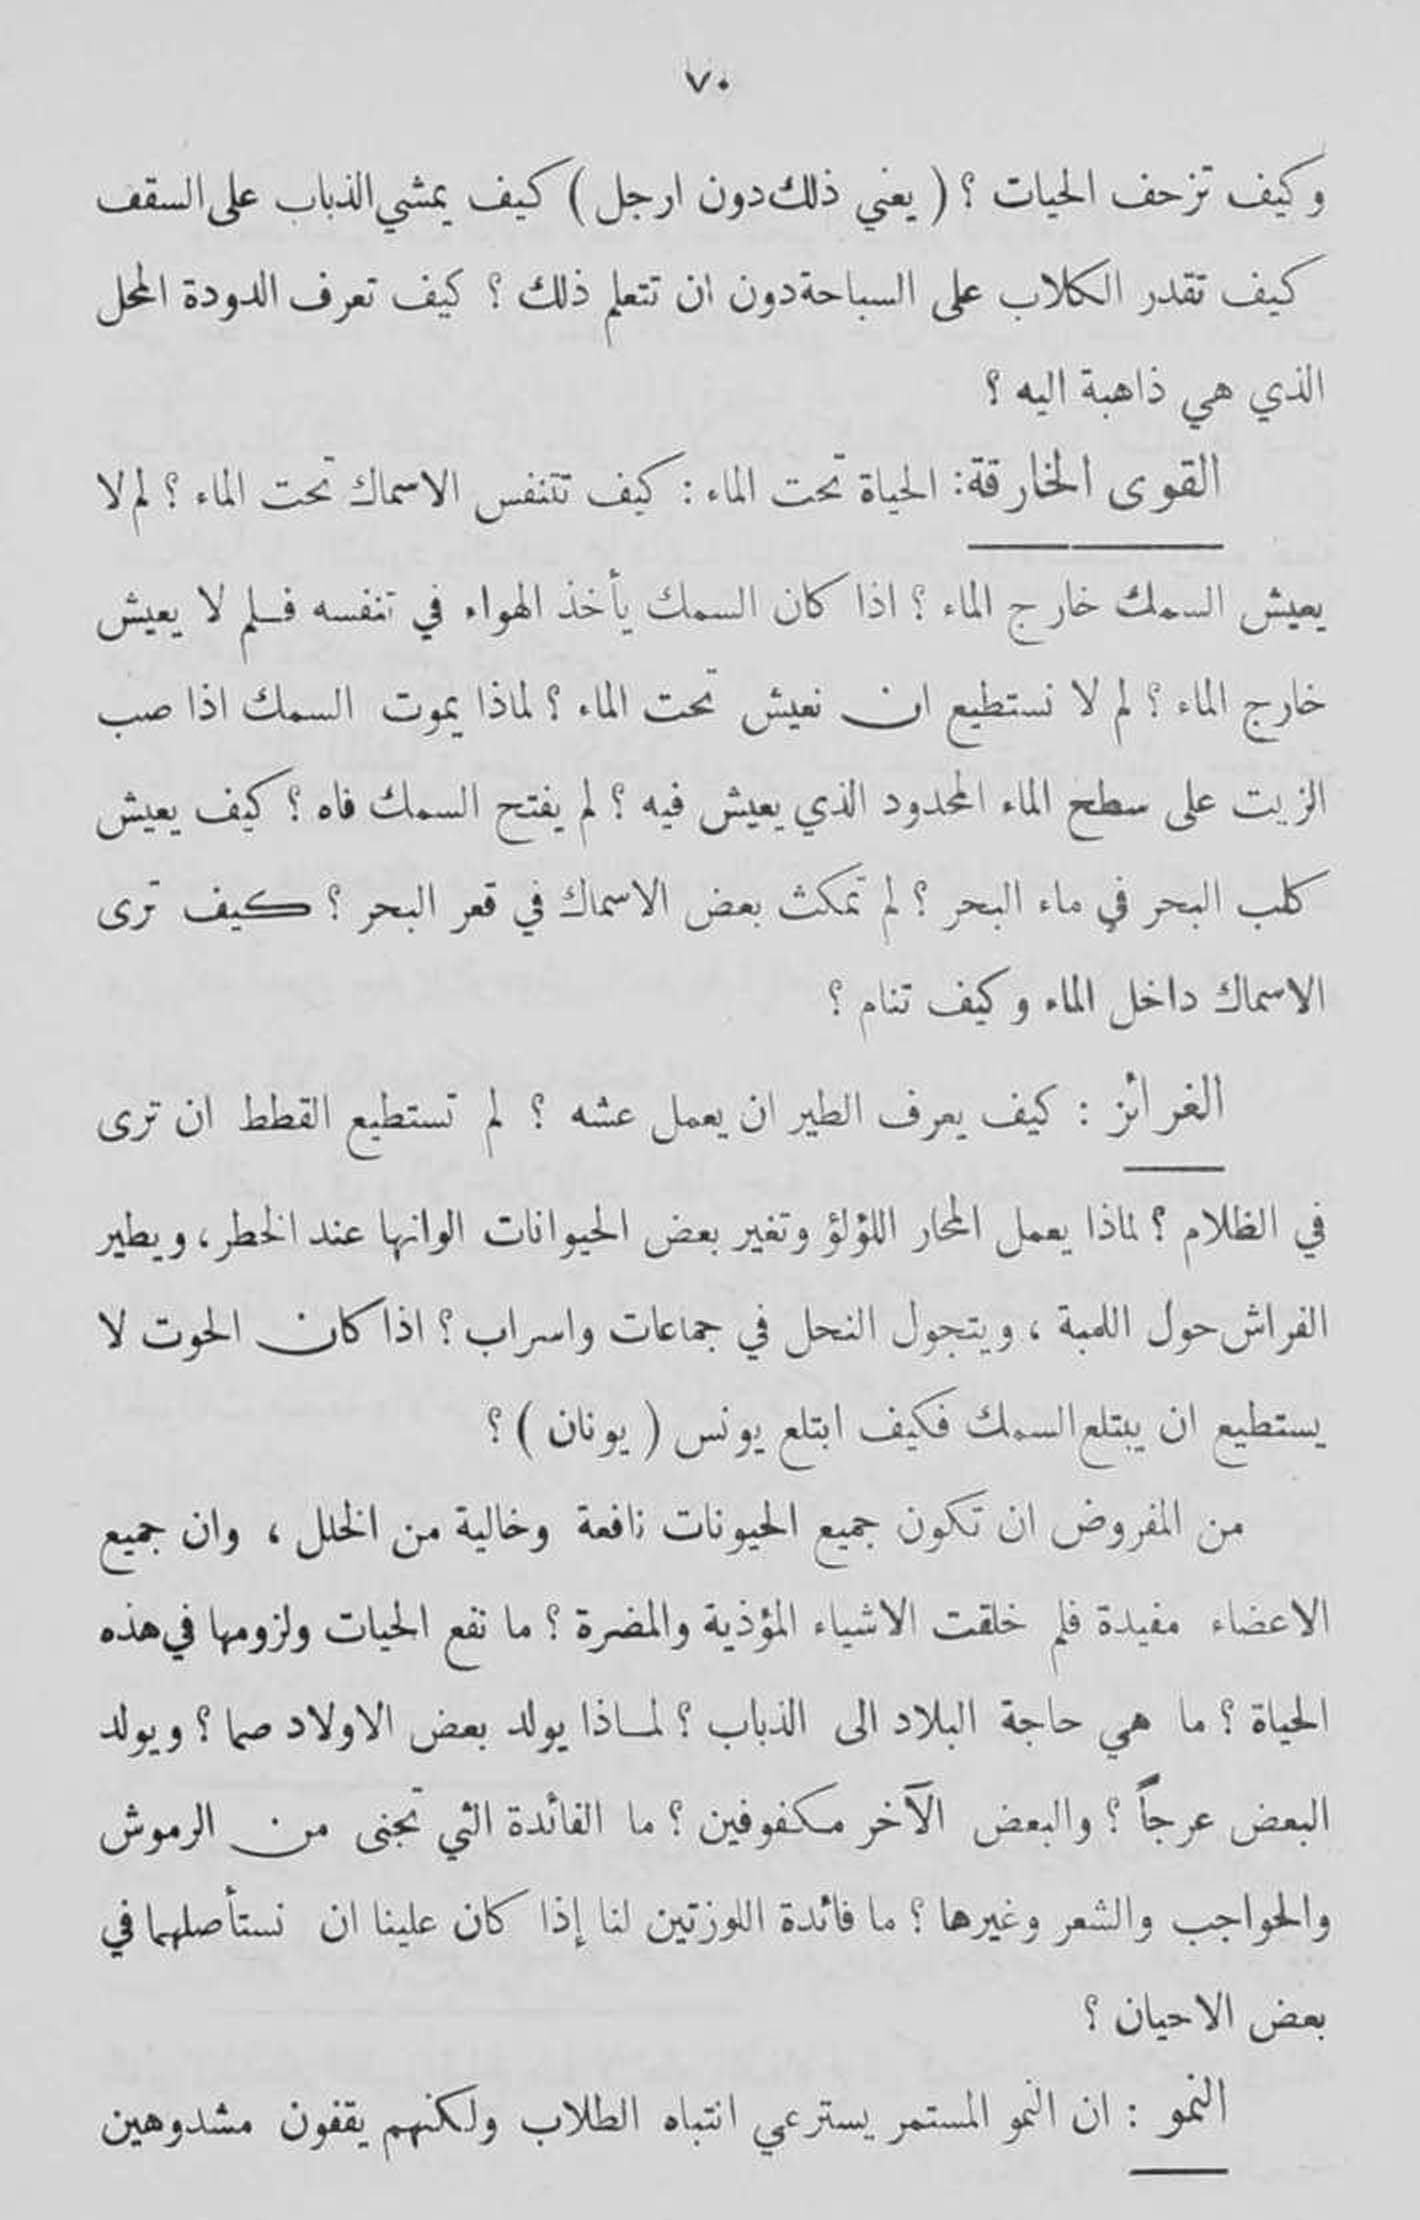 ٧٠
وكيف تزحف الحيات ؟ ( يعني ذلك دون ارجل ) كيف يمشي الذباب على السقف
كيف تقدر الكلاب على السباحة دون ان تتعلم ذلك ؟ كيف تعرف الدودة المحل
الذي هي ذاهبة اليه ؟
القوى الخارقة : الحياة تحت الماء : كيف تتنفس الاسماك تحت الماء ؟ لم لا
يعيش السمك خارج الماء ؟ اذا كان السمك يأخذ الهواء في تنفسه فلم لا يعيش
خارج الماء ؟ لم لا نستطيع ان نعيش تحت الماء ؟ لماذا يموت السمك اذا صب
الزيت على سطح الماء المحدود الذي يعيش فيه ؟ لم يفتح السمك فاه ؟ كيف يعيش
كلب البحر في ماء البحر ؟ لم تمكث بعض الاسماك في قعر البحر ؟ كيف ترى
الاسماك داخل الماء وكيف تنام ؟
الغرائز : كيف يعرف الطير ان يعمل عشه ؟ لم تستطيع القطط ان ترى
في الظلام ؟ لماذا يعمل المحار اللؤلؤ وتغير بعض الحيوانات الوانها عند الخطر ، ويطير
الفراش حول اللمبة ، ويتجول النحل في جماعات واسراب ؟ اذا كان الحوت لا
يستطيع ان يبتلع السمك فكيف ابتلع يونس ( يونان ) ؟
من المفروض ان تكون جميع الحيونات نافعة وخالية من الخلل ، وان جميع
الاعضاء مفيدة فلم خلقت الاشياء المؤذية والمضرة ؟ ما نفع الحيات ولزومها في هذه
الحياة ؟ ما هي حاجة البلاد الى الذباب ؟ لماذا يولد بعض الاولاد صما ؟ ويولد
البعض عرجاً ؟ والبعض الآخر مكفوفين ؟ ما الفائدة التي تجنى من الرموش
والحواجب والشعر وغيرها ؟ ما فائدة اللوزتين لنا إذا كان علينا ان نستأصلهما في
بعض الاحيان ؟
النمو : ان النمو المستمر يسترعي انتباه الطلاب ولكنهم يقفون مشدوهين